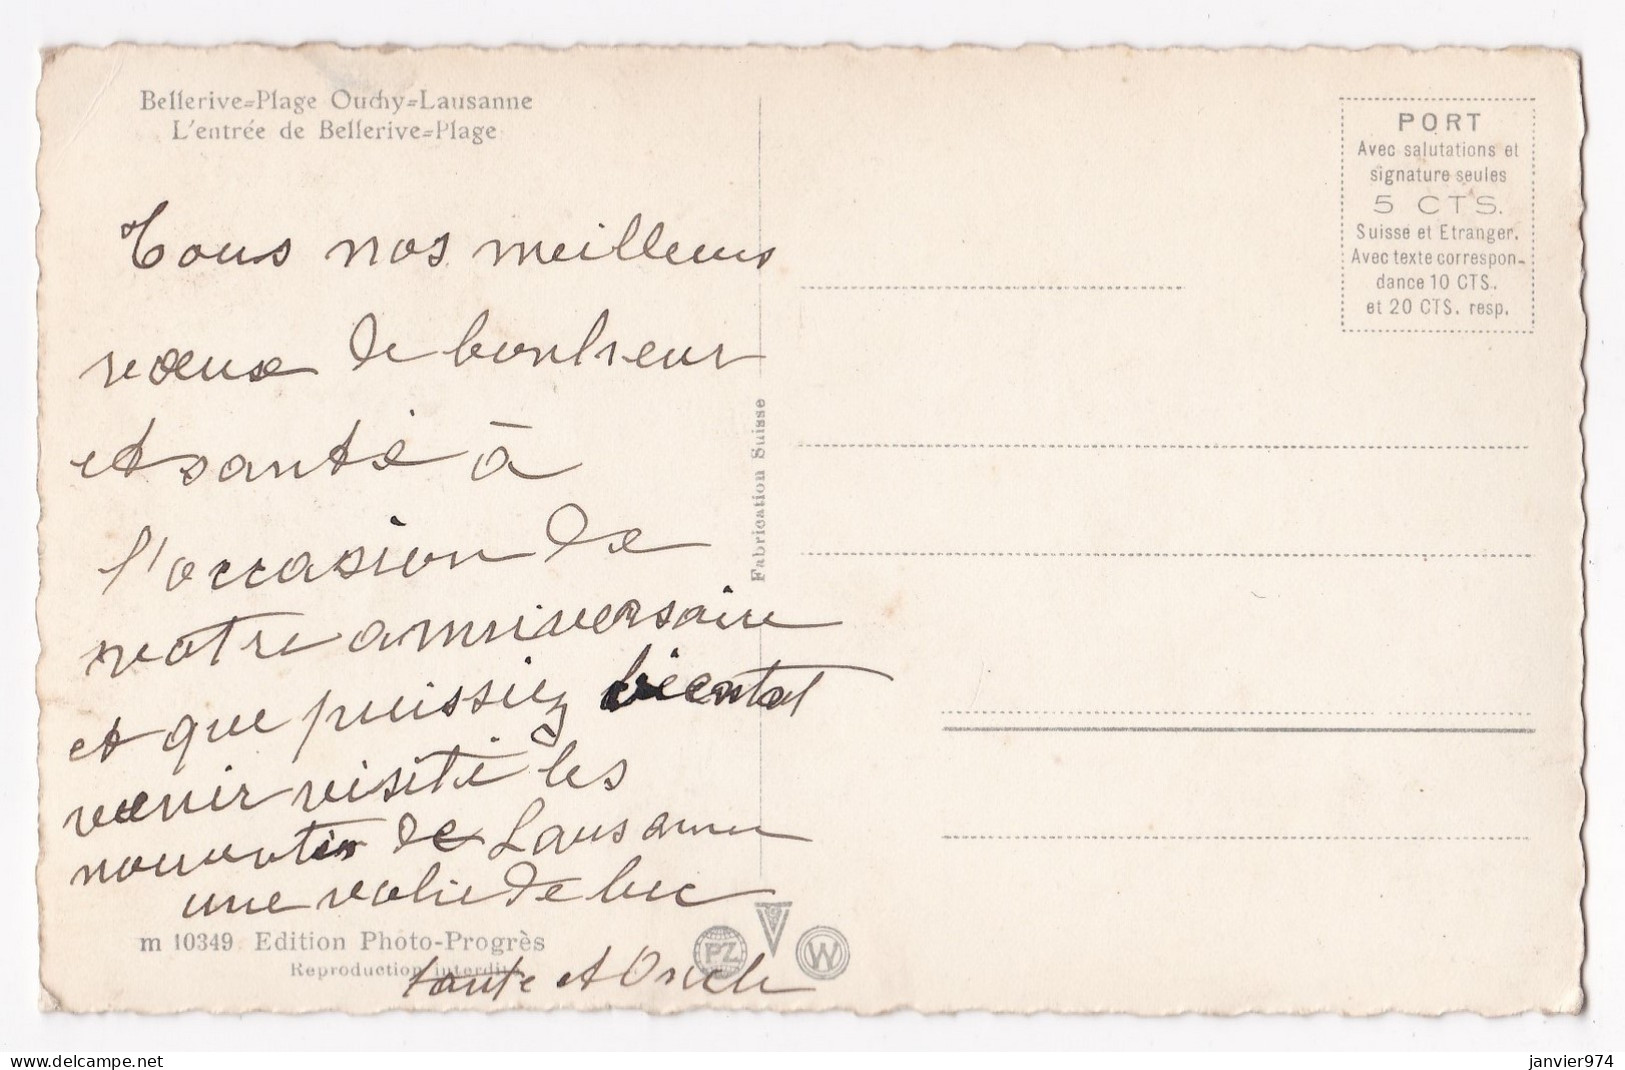 Bellerive-Plage Ouchy-Lausanne
L'entrée de Bellerive-Plage
Tous nos meilleurs
vœux de bonheur
et santé à
l'occasion de
votre anniversaire
et que puissiez bientot
venir visité les
de Lausanne
une de
tante et Oncle
m 10349 Edition Photo-Progrès
Reproduction interdite
Fabrication Suisse
PZ
W
PORT
Avec salutations et
signature seules
5 CTS.
Suisse et Etranger.
Avec texte correspon-
dance 10 CTS.
et 20 CTS. resp.
janvier974